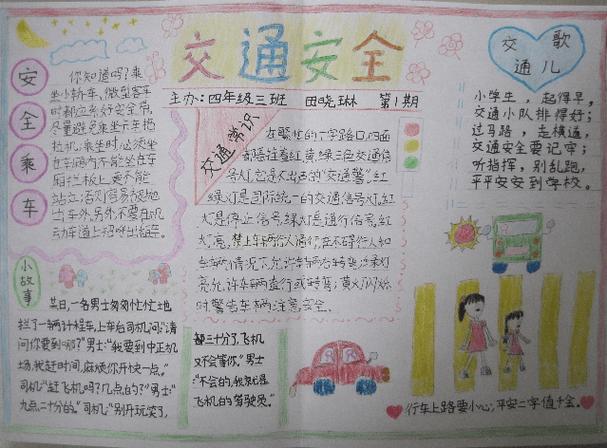 交通安全
主办:四年级三班 田晓琳 第1期
安全乘车
你知道吗?乘
坐小轿车、微型客车
时都应系好安全带,
尽量避免乘坐卡车拖
拉机;乘坐时,必须坐
在车厢内不能坐在车
厢拦板上,更不能
站立,否则容易被抛
出车外,另外,不要在机
动车道上招呼出租车。
交通常识
在繁忙的十字路口,四面
都悬挂着红、黄、绿三色交通信
号灯,它是不出声的“交通警”红
绿灯是国际统一的交通信号灯,红
灯是停止信号,绿灯是通行信号,红
灯亮,禁止车辆行人通行,在不碍行人和
车辆情况下,允许车辆右转弯;绿灯
亮允许车辆直行或转弯;黄灯闪烁
时,警告车辆注意安全.
交通儿歌
小学生,起得早,
交通小队排得好;
过马路,走横道,
交通安全要记牢;
听指挥,别乱跑,
平平安安到学校。
小故事
某日,一名男士匆匆忙忙地
拦了一辆计程车,上车后司机问“请
问你要到哪?”男士:“我要到中正机
场,我赶时间,麻烦你开快一点。”
司机“赶飞机吗?几点的?”男士:“
九点二十分的。”司机“别开玩笑了,
都三十分了,飞机
又不会等你。”男士
“不会的,我就是
飞机的驾驶员。”
行车上路要小心,平安二字值千金。